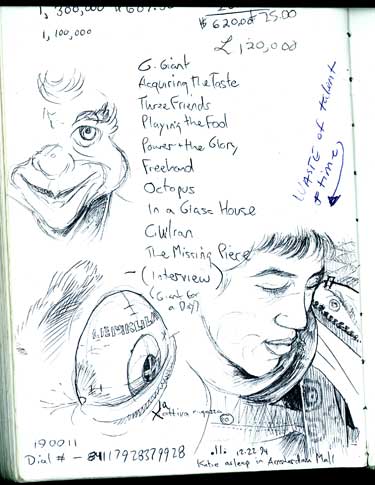 1, 300,000
1, 100,000
$ 620.00 + 75.00
£ 120,000
G. Giant
Acquiring the Taste
Three Friends
Playing the Fool
Power + the Glory
Freehand
Octopus
In a Glass House
Civilian
The Missing Piece
(Interview)
(Giant for
a Day)
WASTE of talent
+ time
La
cattiva ragazza
190011
Dial # -
12.22.94
Katie asleep in Amsterdam Mall